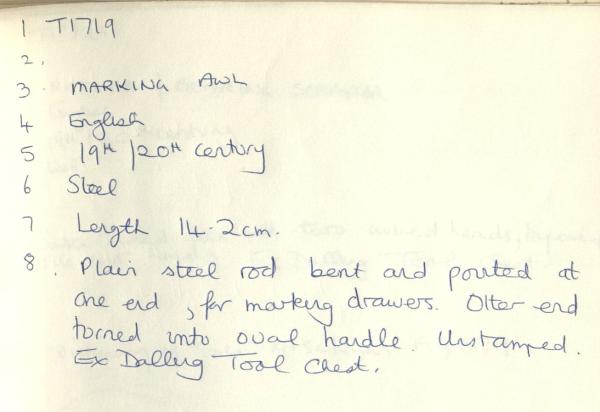 1 T1719
2.
3 MARKING AWL
4 English
5 19TH/20TH century
6 Steel
7 Length 14.2cm.
8. Plain steel rod bent and pointed at
one end, for marking drawers. Other end
turned into oval handle. Unstamped.
Ex Dalling Tool Chest.